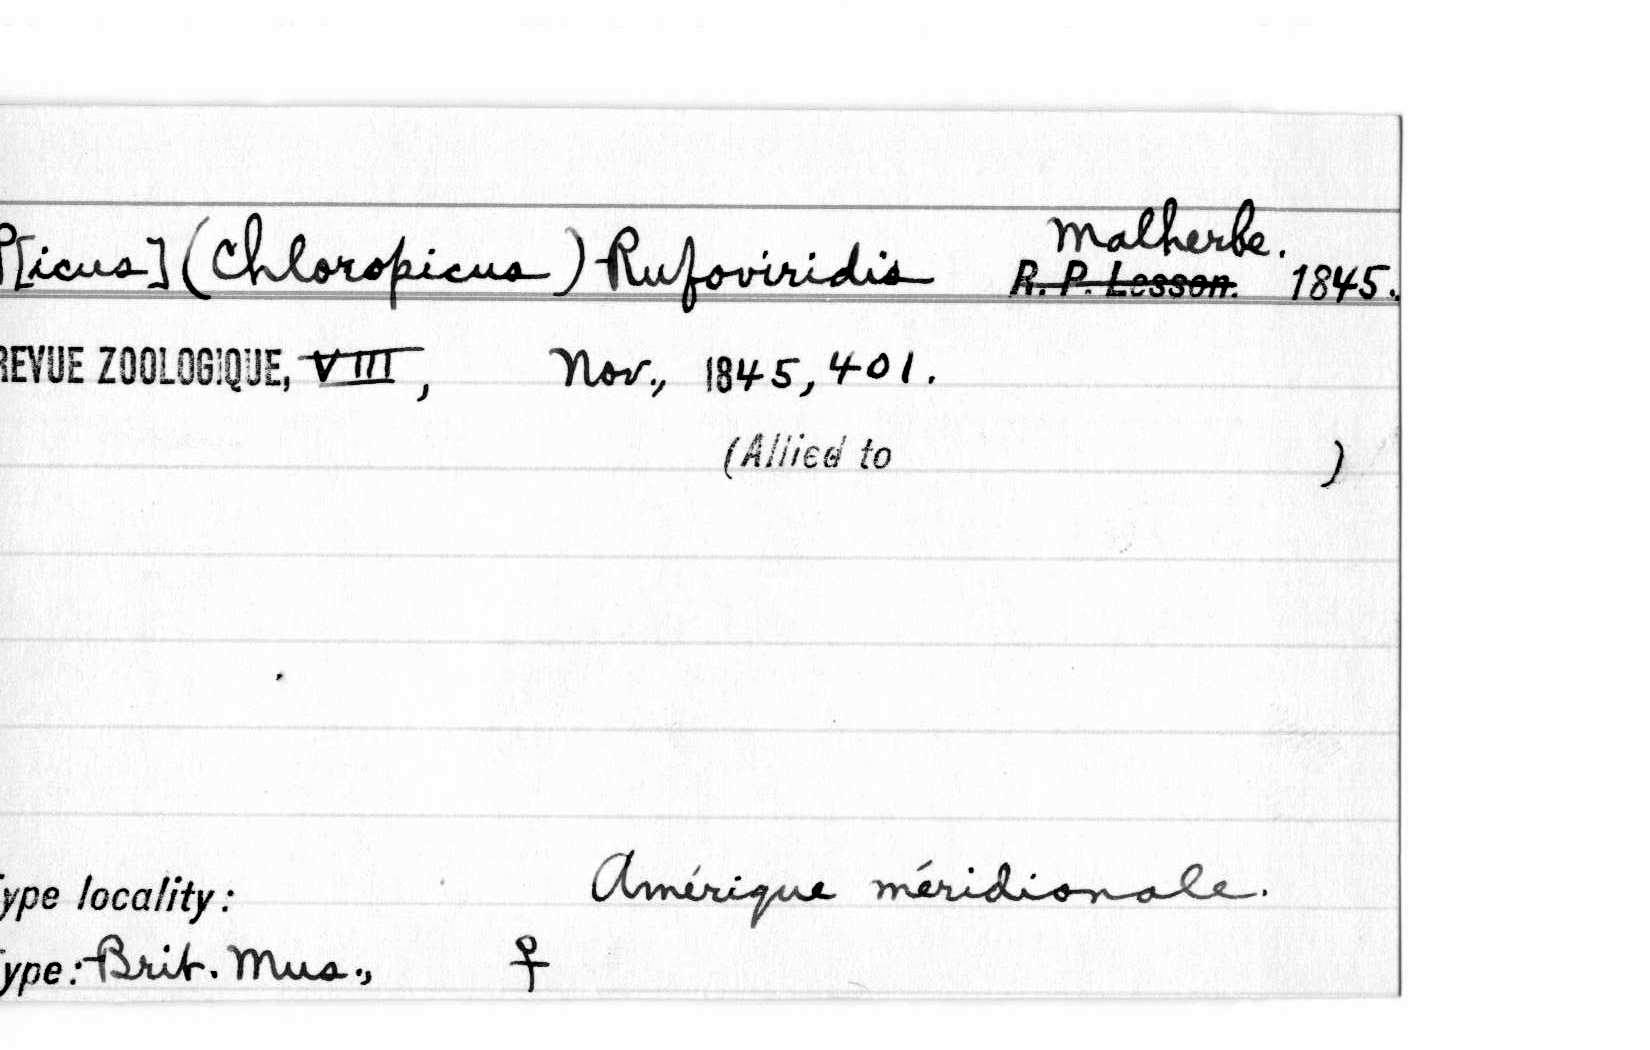 P[icus] (Chloropicus) Rufoviridis Malherbe.
R. P. Lesson. 1845.
REVUE ZOOLOGIQUE, VIII, Nov., 1845, 401.
(Allied to )
Type locality: Amérique méridionale.
Type: Brit. Mus., ♀